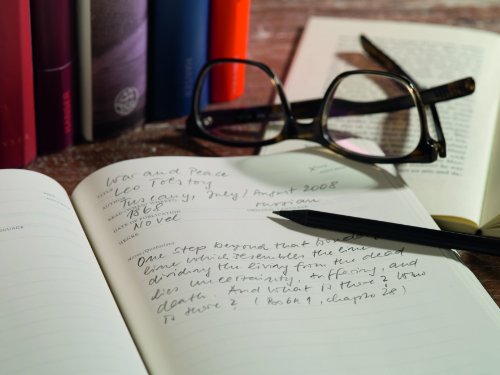 War and Peace
TITLE
Leo Tolstoy
AUTHOR
Tuscany, July/August 2008
1868 russian
DATE OF PUBLICATION
Novel
GENRE
One step beyond that
line which resembles the line
dividing the living from the dead
lies uncertainty, suffering, and
death. And what is there? Who
is there? (Book 1, chapter 28)